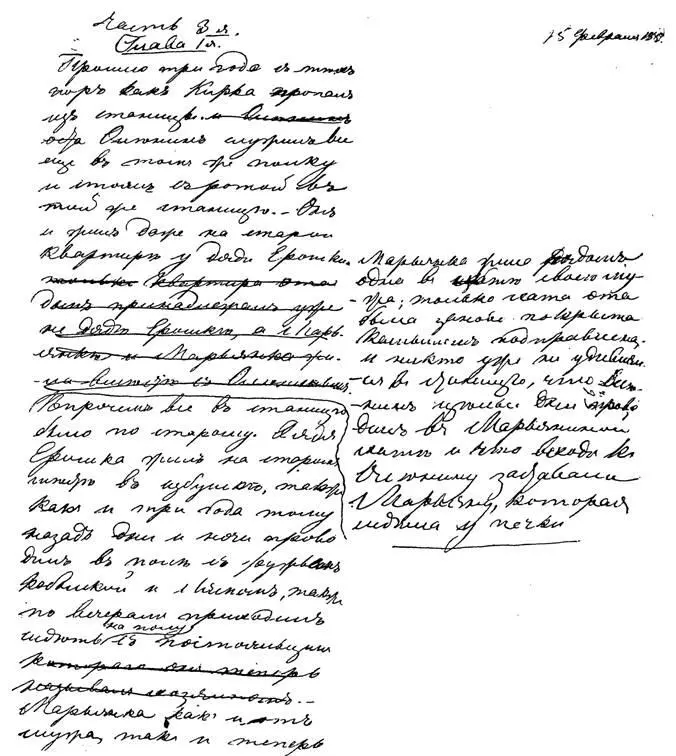 Часть 3я.
Глава 1я.
15 февраля
Прошло три года съ тѣхъ
поръ какъ Кирка пропалъ
изъ станицы. и Оленинъ
Оленинъ служилъ все
еще въ томъ же полку
и стоялъ съ ротой въ
той же станицѣ. — Онъ
и жилъ даже на старой
квартирѣ у дяди Ерошки.
только квартира эта
домъ принадлежалъ уже
не дядѣ Ерошкѣ, а Марь-
янкѣ и Марьянка жи-
ла вмѣстѣ съ Оленинымъ.
Впрочемъ все въ станицѣ
было по старому. Дядя
Ерошка жилъ на старомъ
въ избушкѣ, также
какъ и три года тому
назадъ дни и ночи прово
дилъ въ полѣ съ ружьемъ
кобылкой и Лямомъ, также
по вечерамъ приходилъ
на полу
сидѣть съ постояльцемъ
котораго онъ теперь
называлъ хозяиномъ. —
Марьянка какъ и отъ
мужа, такъ и теперь
Марьянка жила
одна въ хатѣ своего му-
жа; только хата эта
была заново покрыта
камышемъ подправлена.
и никто уже не удивлял-
ся въ станицѣ, что Оле-
нинъ цѣлые дни прово
дилъ въ Марьянкиной
хатѣ и что всходя къ
Оленину заставали
Марьянку, которая
сидѣла у печки